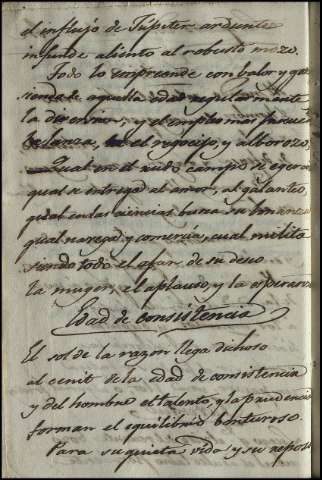 el influjo de Júpiter ardiente
infunde aliento al robusto mozo.
Todo lo emprende con valor y
aquella edad regularmente
la diversion, y el
el regocijo, y alborozo,
qual en el rudo campo se egercita
qual se entrega al amor, al galanteo,
qual en las ciencias busca su bonanza
qual navega, y comercia, cual milita
siendo todo el afan de su deseo
la muger, el aplauso, y la esperanza
Edad de consistencia
El sol de la razon llega dichoso
al cenit de la edad de consistencia
y del hombre el talento, y la prudencia
forman el equilibrio venturoso.
Para su quieta vida, y su reposo